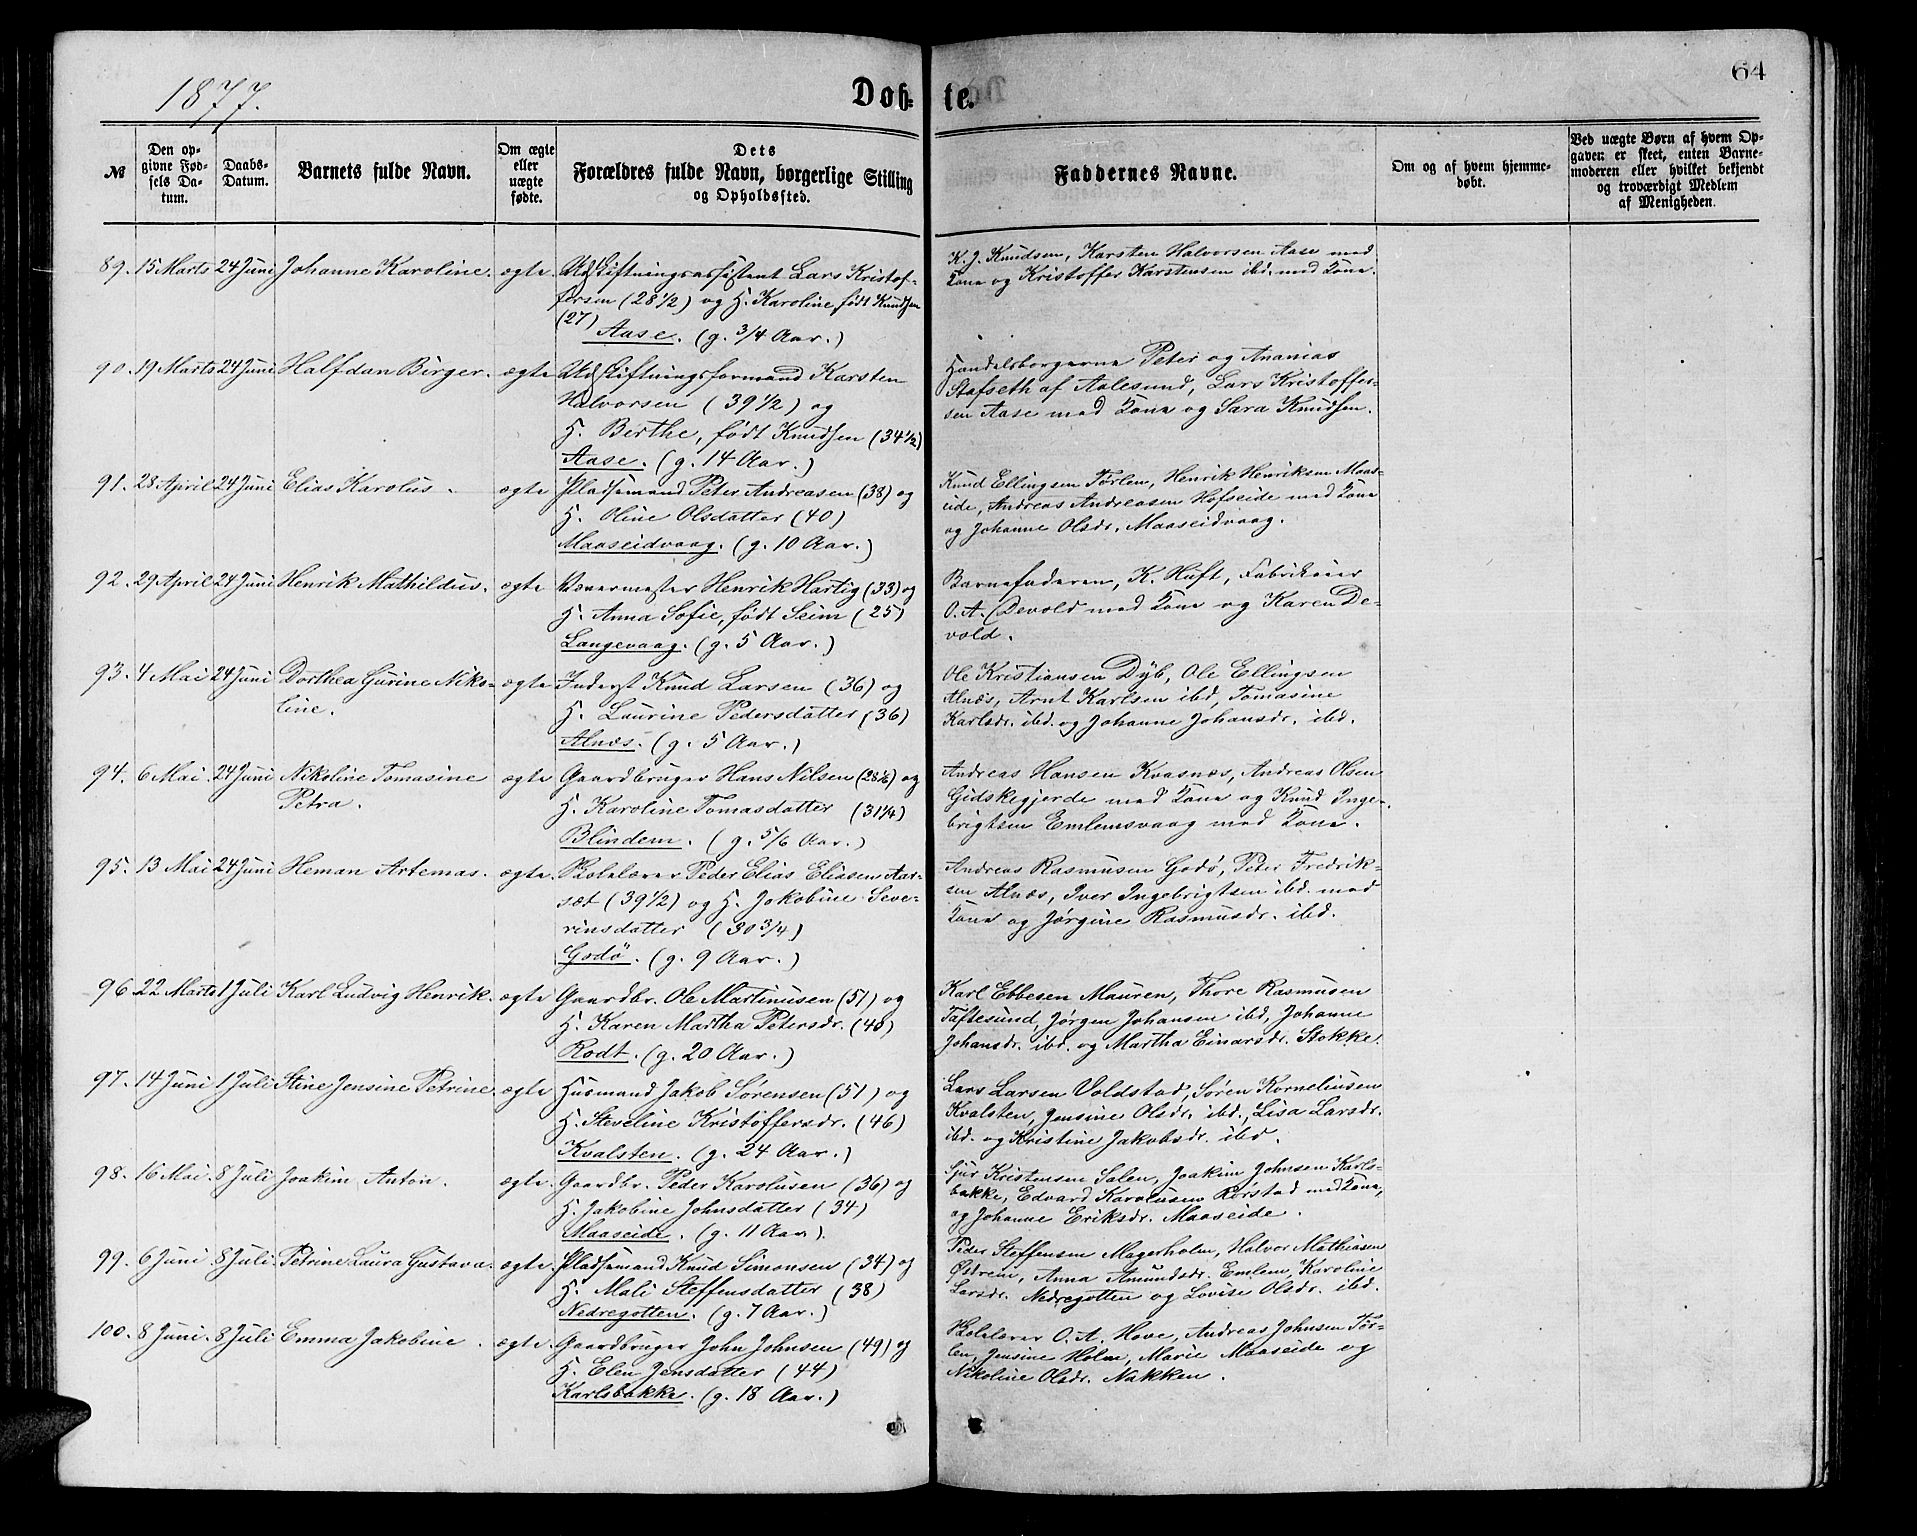 1877.
Døb-
te.
64
№
Den op-
givne Fød-
sels Da-
tum.
Daabs-
Datum.
Barnets fulde Navn.
Om ægte
eller
uægte
fødte.
Dets
Forældres fulde Navn, borgerlige Stilling
og Opholdssted.
Faddernes Navne.
Om og af hvem hjemme-
døbt.
Ved uægte Børn af hvem Op-
gaven er skeet, enten Barne-
moderen eller hvilket bekjendt
og troværdigt Medlem
af Menigheden.
89. 15 Marts 24 Juni Johanne Karoline. ægte Udskiftningsassistent Lars Kristof-
fersen (28 1/2) og H. Karoline, født Knudsen
(27)
Aase. (g. 3/4 Aar.)
K. J. Knudsen, Karsten Halvorsen Aase med
Kone og Kristoffer Karstensen ibd. med Kone.
90. 19 Marts 24 Juni Halfdan Birger. ægte Udskiftningsformand Karsten
Halvorsen (39 1/2) og
H. Berthe, født Knudsen (34 1/2)
Aase. (g. 14 Aar.)
Handelsborgerne Peter og Ananias
Stafseth af Aalesund, Lars Kristoffer-
sen Aase med Kone og Sara Knudsen.
91. 28 April 24 Juni Elias Karolus. ægte Pladsemand Peter Andreasen (38) og
H. Oline Olsdatter (40)
Maaseidvaag. (g. 10 Aar.)
Knud Ellingsen Tørlen, Henrik Henriksen Maas-
eide, Andreas Andreasen Hofseide med Kone
og Johanne Olsdr. Maaseidvaag.
92. 29 April 24 Juni Henrik Mathildus. ægte Vævermester Henrik Hartig (33) og
H. Anna Sofie, født Seim (25)
Langevaag. (g. 5 Aar.)
Barnefaderen, K. Huft, Fabrikeier
O. A. Devold med Kone og Karen De-
vold.
93. 4 Mai 24 Juni Dorthea Gurine Niko-
line.
ægte Inderst Knud Larsen (36) og
H. Laurine Pedersdatter (36)
Alnæs. (g. 5 Aar.)
Ole Kristiansen Dyb, Ole Ellingsen
Alnæs, Arnt Karlsen ibd, Tomasine
Karlsdr. ibd. og Johanne Johansdr. ibd.
94. 6 Mai. 24 Juni Nikoline Tomasine
Petra.
ægte Gaardbruger Hans Nilsen (28 1/6) og
H. Karoline Tomasdatter (31 1/4)
Blindem. (g. 5/6 Aar.)
Andreas Hansen Kvasnæs, Andreas Olsen
Gidskegjerde med Kone og Knud Inge-
brigtsen Emlemsvaag med Kone.
95. 13 Mai 24 Juni Heman Artemas. ægte. Skolelærer Peder Elias Eliasen Aar-
sæt (39 1/2) og H. Jakobine Seve-
rinsdatter (30 3/4)
Godø. (g. 9 Aar.)
Andreas Rasmusen Godø, Peter Fredrik-
sen Alnæs, Iver Ingebrigtsen ibd. med
Kone og Jørgine Rasmusdr. ibd.
96. 22 Marts 1 Juli Karl Ludvig Henrik. ægte Gaardbr. Ole Martinusen (51) og
H. Karen Martha Petersdr. (40)
Rodt. (g. 20 Aar.)
Karl Ebbesen Mauren, Thore Rasmusen
Taftesund, Jørgen Johansen ibd, Johanne
Johansdr. ibd. og Martha Einarsdr. Stokke.
97. 14 Juni 1 Juli Stine Jensine Petrine. ægte Husmand Jakob Sørensen (51) og
H. Steveline Kristoffersdr. (46)
Kvalsten. (g. 24 Aar.)
Lars Larsen Voldstad, Søren Korneliusen
Kvalsten, Jensine Olsdr. ibd., Lisa Larsdr.
ibd. og Kristine Jakobsdr. ibd.
98. 16 Mai. 8 Juli Joakim Anton. ægte. Gaardbr. Peder Karolusen (36) og
H. Jakobine Johnsdatter (34)
Maaseide. (g. 11 Aar).
Sjur Kristensen Salen, Joakim Johnsen Karls-
bakke, Edvard Karolusen Rørstad med Kone,
og Johanne Eriksdr. Maaseide.
99. 6 Juni. 8 Juli. Petrine Laura Gustava. ægte. Pladsemand Knud Simonsen (34) og
H. Mali Steffensdatter (38)
Nedregotten. (g. 7 Aar.)
Peder Steffensen Magerholm, Halvor Mathiasen
Østrem, Anna Amundsdr. Emlem, Karoline
Larsdr. Nedregotten og Lovise Olsdr. ibd.
100. 8 Juni. 8 Juli Emma Jakobine. ægte. Gaardbruger John Johnsen (49) og
H. Elen Jensdatter (44)
Karlsbakke. (g. 18 Aar.)
Skolelærer O. A. Hove, Andreas Johnsen Tør-
len, Jensine Holm, Marie Maaseide og
Nikoline Olsdr. Nakken.